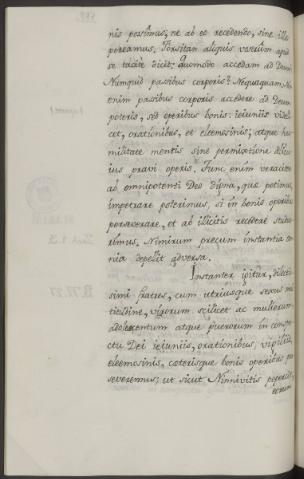 nis possimus; ne ab eo recedendo, sine illo
pereamus. Forsitan aliquis vestrûm apud
se tacite dicit: Quomodo accedam ad Deum?
Numquid passibus corporis? Nequaquam. Non
enim passibus corporis accedere ad Deum
poteris, sed operibus bonis: ieiuniis videli-
cet, orationibus, et eleemosinis; atque hu-
militate mentis sine permixtione
ius pravi operis. Tunc enim veraciter
ab omnipotenti Deo digna, quæ petimus,
impetrare poterimus, si in bonis operibus
perseverare, et ab illicitis recedere studue-
rimus. Nimirum precum instantia om-
nia depellit adversa.
Instanter igitur, dilectis-
simi fratres, cum utriusque sexus mul-
titudine, virorum scilicet ac mulierum
adolescentum atque puerorum in conspe-
ctu Dei ieiuniis, orationibus, vigiliis,
eleemosinis, cæterisque bonis operibus per-
severemus; ut sicut Ninivitis pepercit